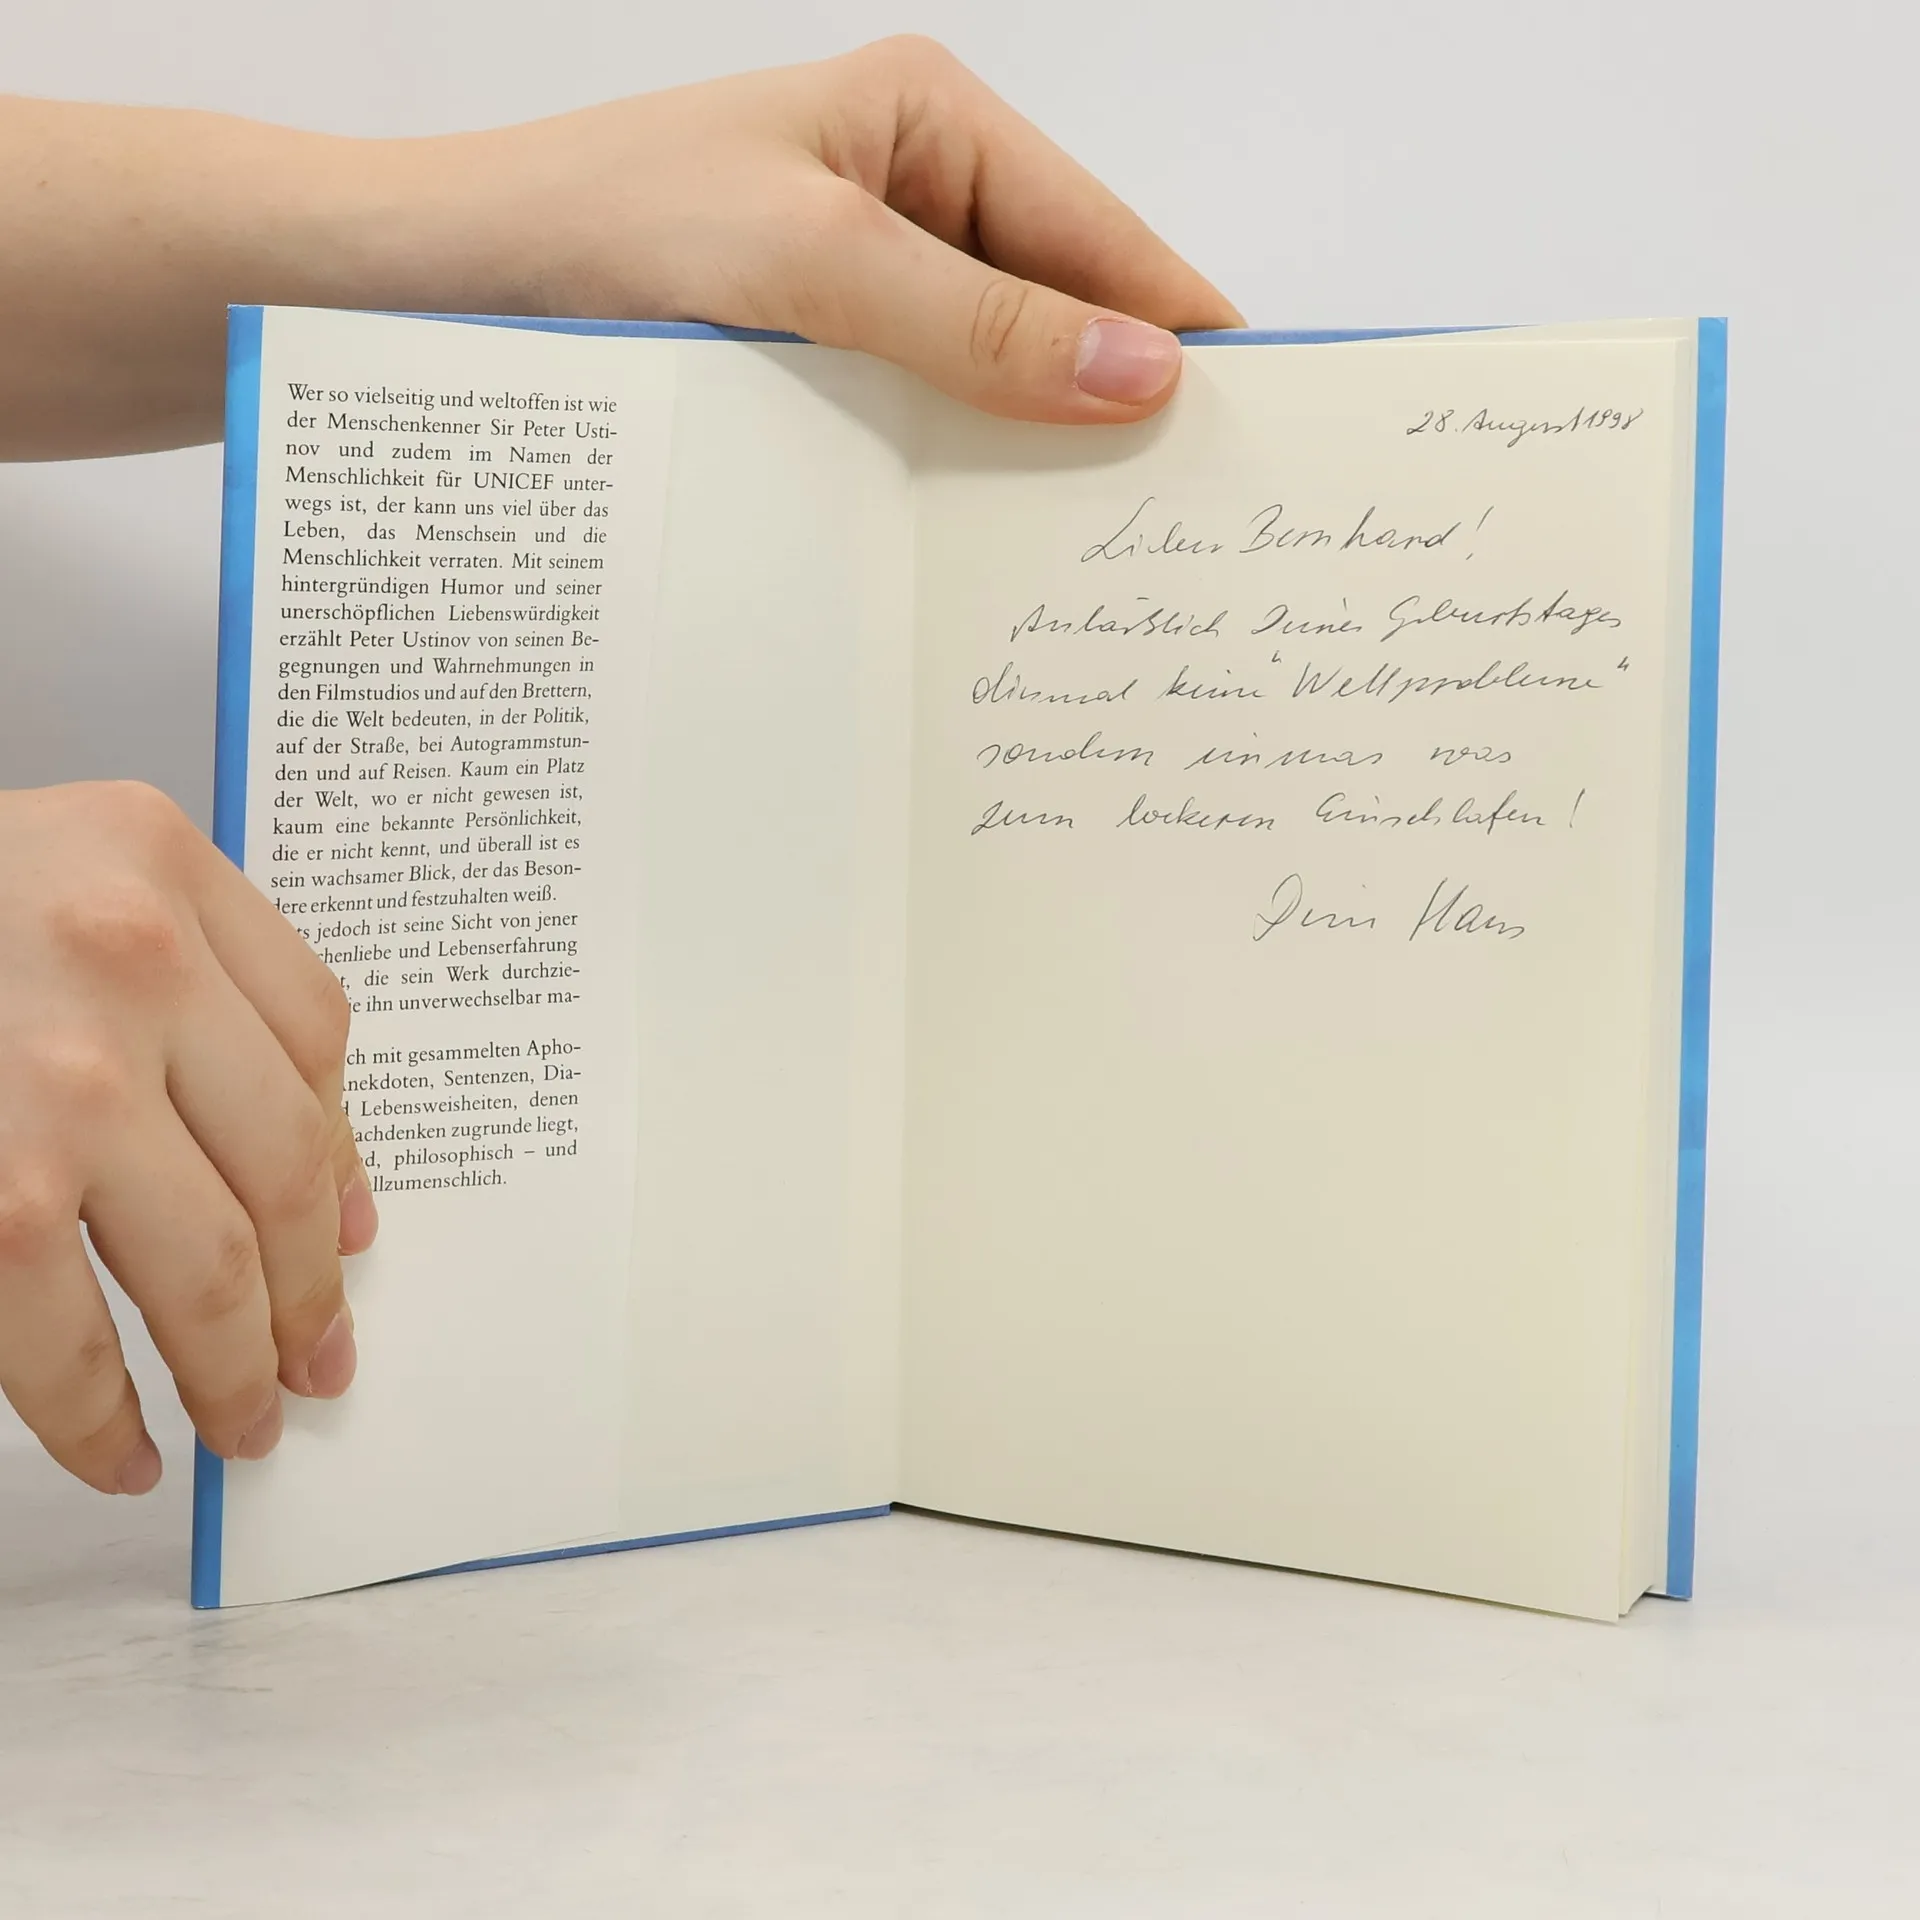 Wer so vielseitig und weltoffen ist wie
der Menschenkenner Sir Peter Usti-
nov und zudem im Namen der
Menschlichkeit für UNICEF unter-
wegs ist, der kann uns viel über das
Leben, das Menschsein und die
Menschlichkeit verraten. Mit seinem
hintergründigen Humor und seiner
unerschöpflichen Liebenswürdigkeit
erzählt Peter Ustinov von seinen Be-
gegnungen und Wahrnehmungen in
den Filmstudios und auf den Brettern,
die die Welt bedeuten, in der Politik,
auf der Straße, bei Autogrammstun-
den und auf Reisen. Kaum ein Platz
der Welt, wo er nicht gewesen ist,
kaum eine bekannte Persönlichkeit,
die er nicht kennt, und überall ist es
sein wachsamer Blick, der das Beson-
dere erkennt und festzuhalten weiß.
ts jedoch ist seine Sicht von jener
chenliebe und Lebenserfahrung
t, die sein Werk durchzie-
ie ihn unverwechselbar ma-
ch mit gesammelten Apho-
nekdoten, Sentenzen, Dia-
d Lebensweisheiten, denen
achdenken zugrunde liegt,
d, philosophisch – und
llzumenschlich.
28. August 1998
Lieber Bernhard!
Anläßlich Deines Geburtstages
diesmal keine "Weltprobleme"
sondern einmas was
zum lockeren Einschlafen!
Dein Hans